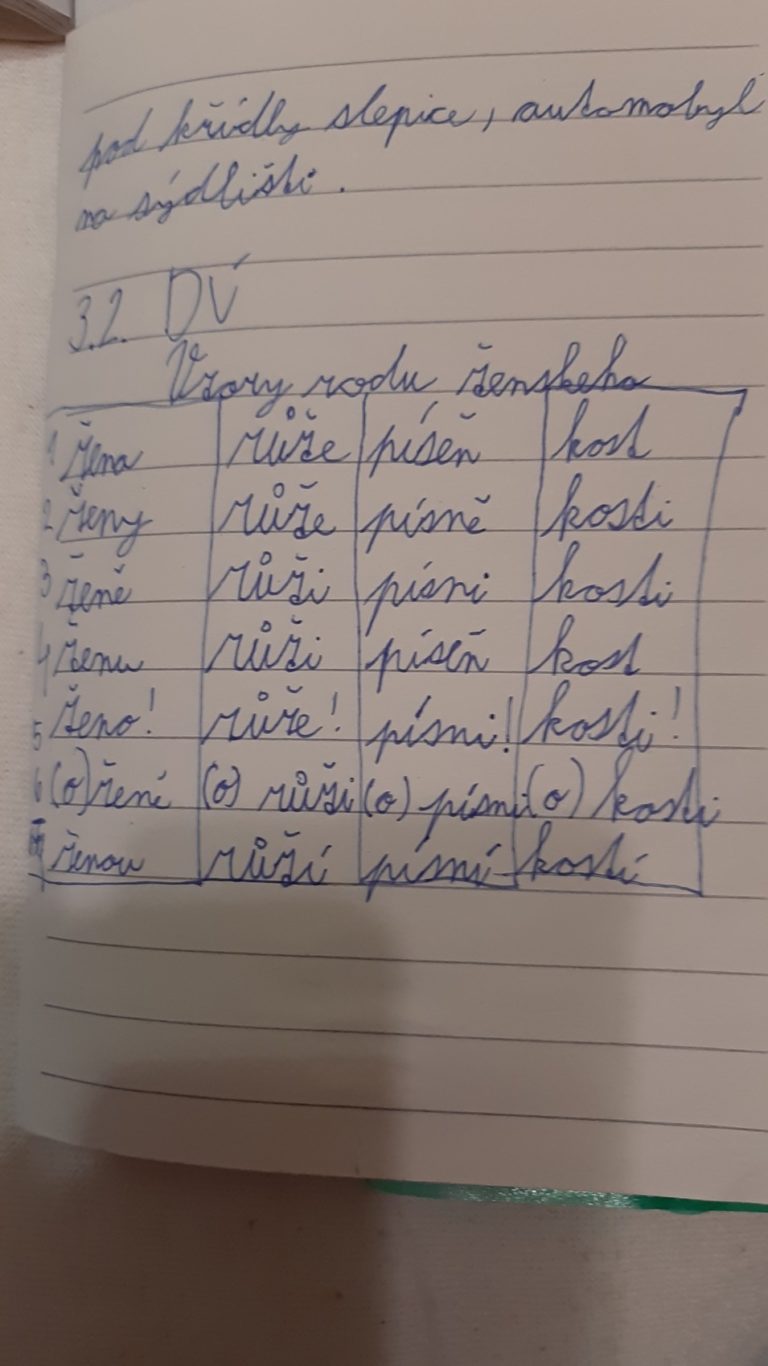 pod křídly slepice, automobyl
na sýdlišti.
3.2. DÚ
Vzory rodu ženskeho
1 žena růže píseň kost
2 ženy růže písně kosti
3 ženě růži písni kosti
4 ženu růži píseň kost
5 ženo! růže! písni! kosti!
6 (o) ženě (o) růži (o) písni (o) kosti
ženou růží písní kostí